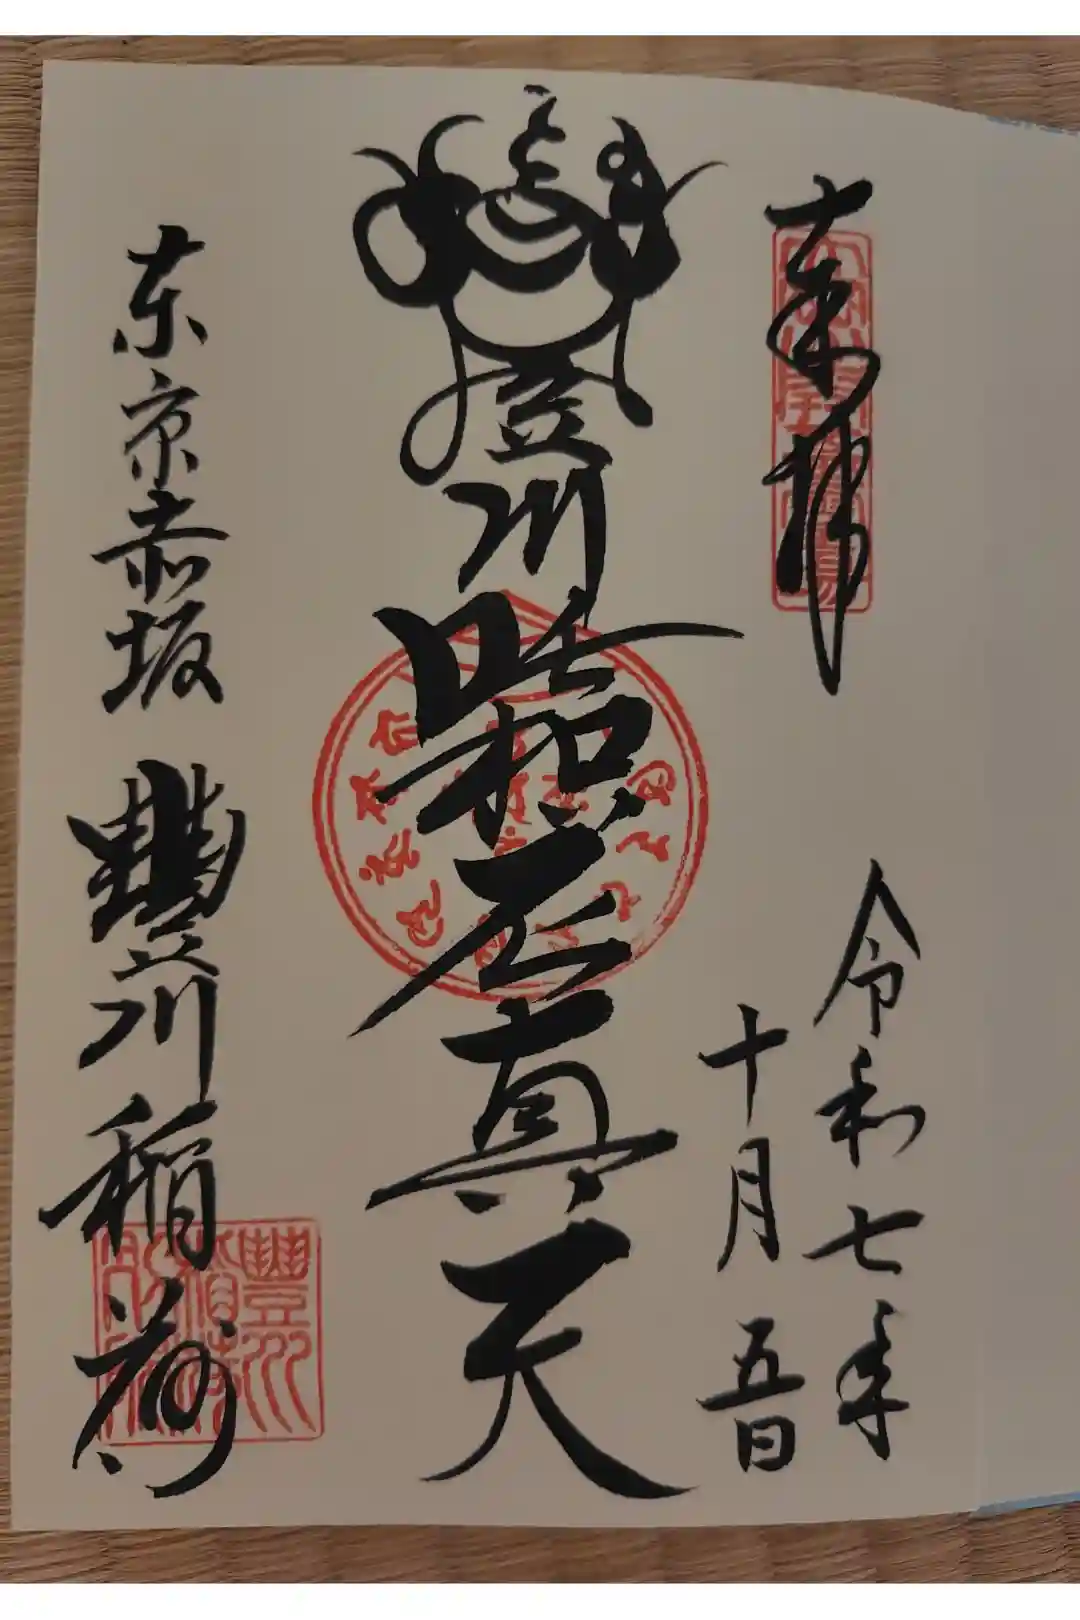 奉拝
令和七年
十月五日
豐川吒枳尼真天
東京赤坂
豐川稲荷